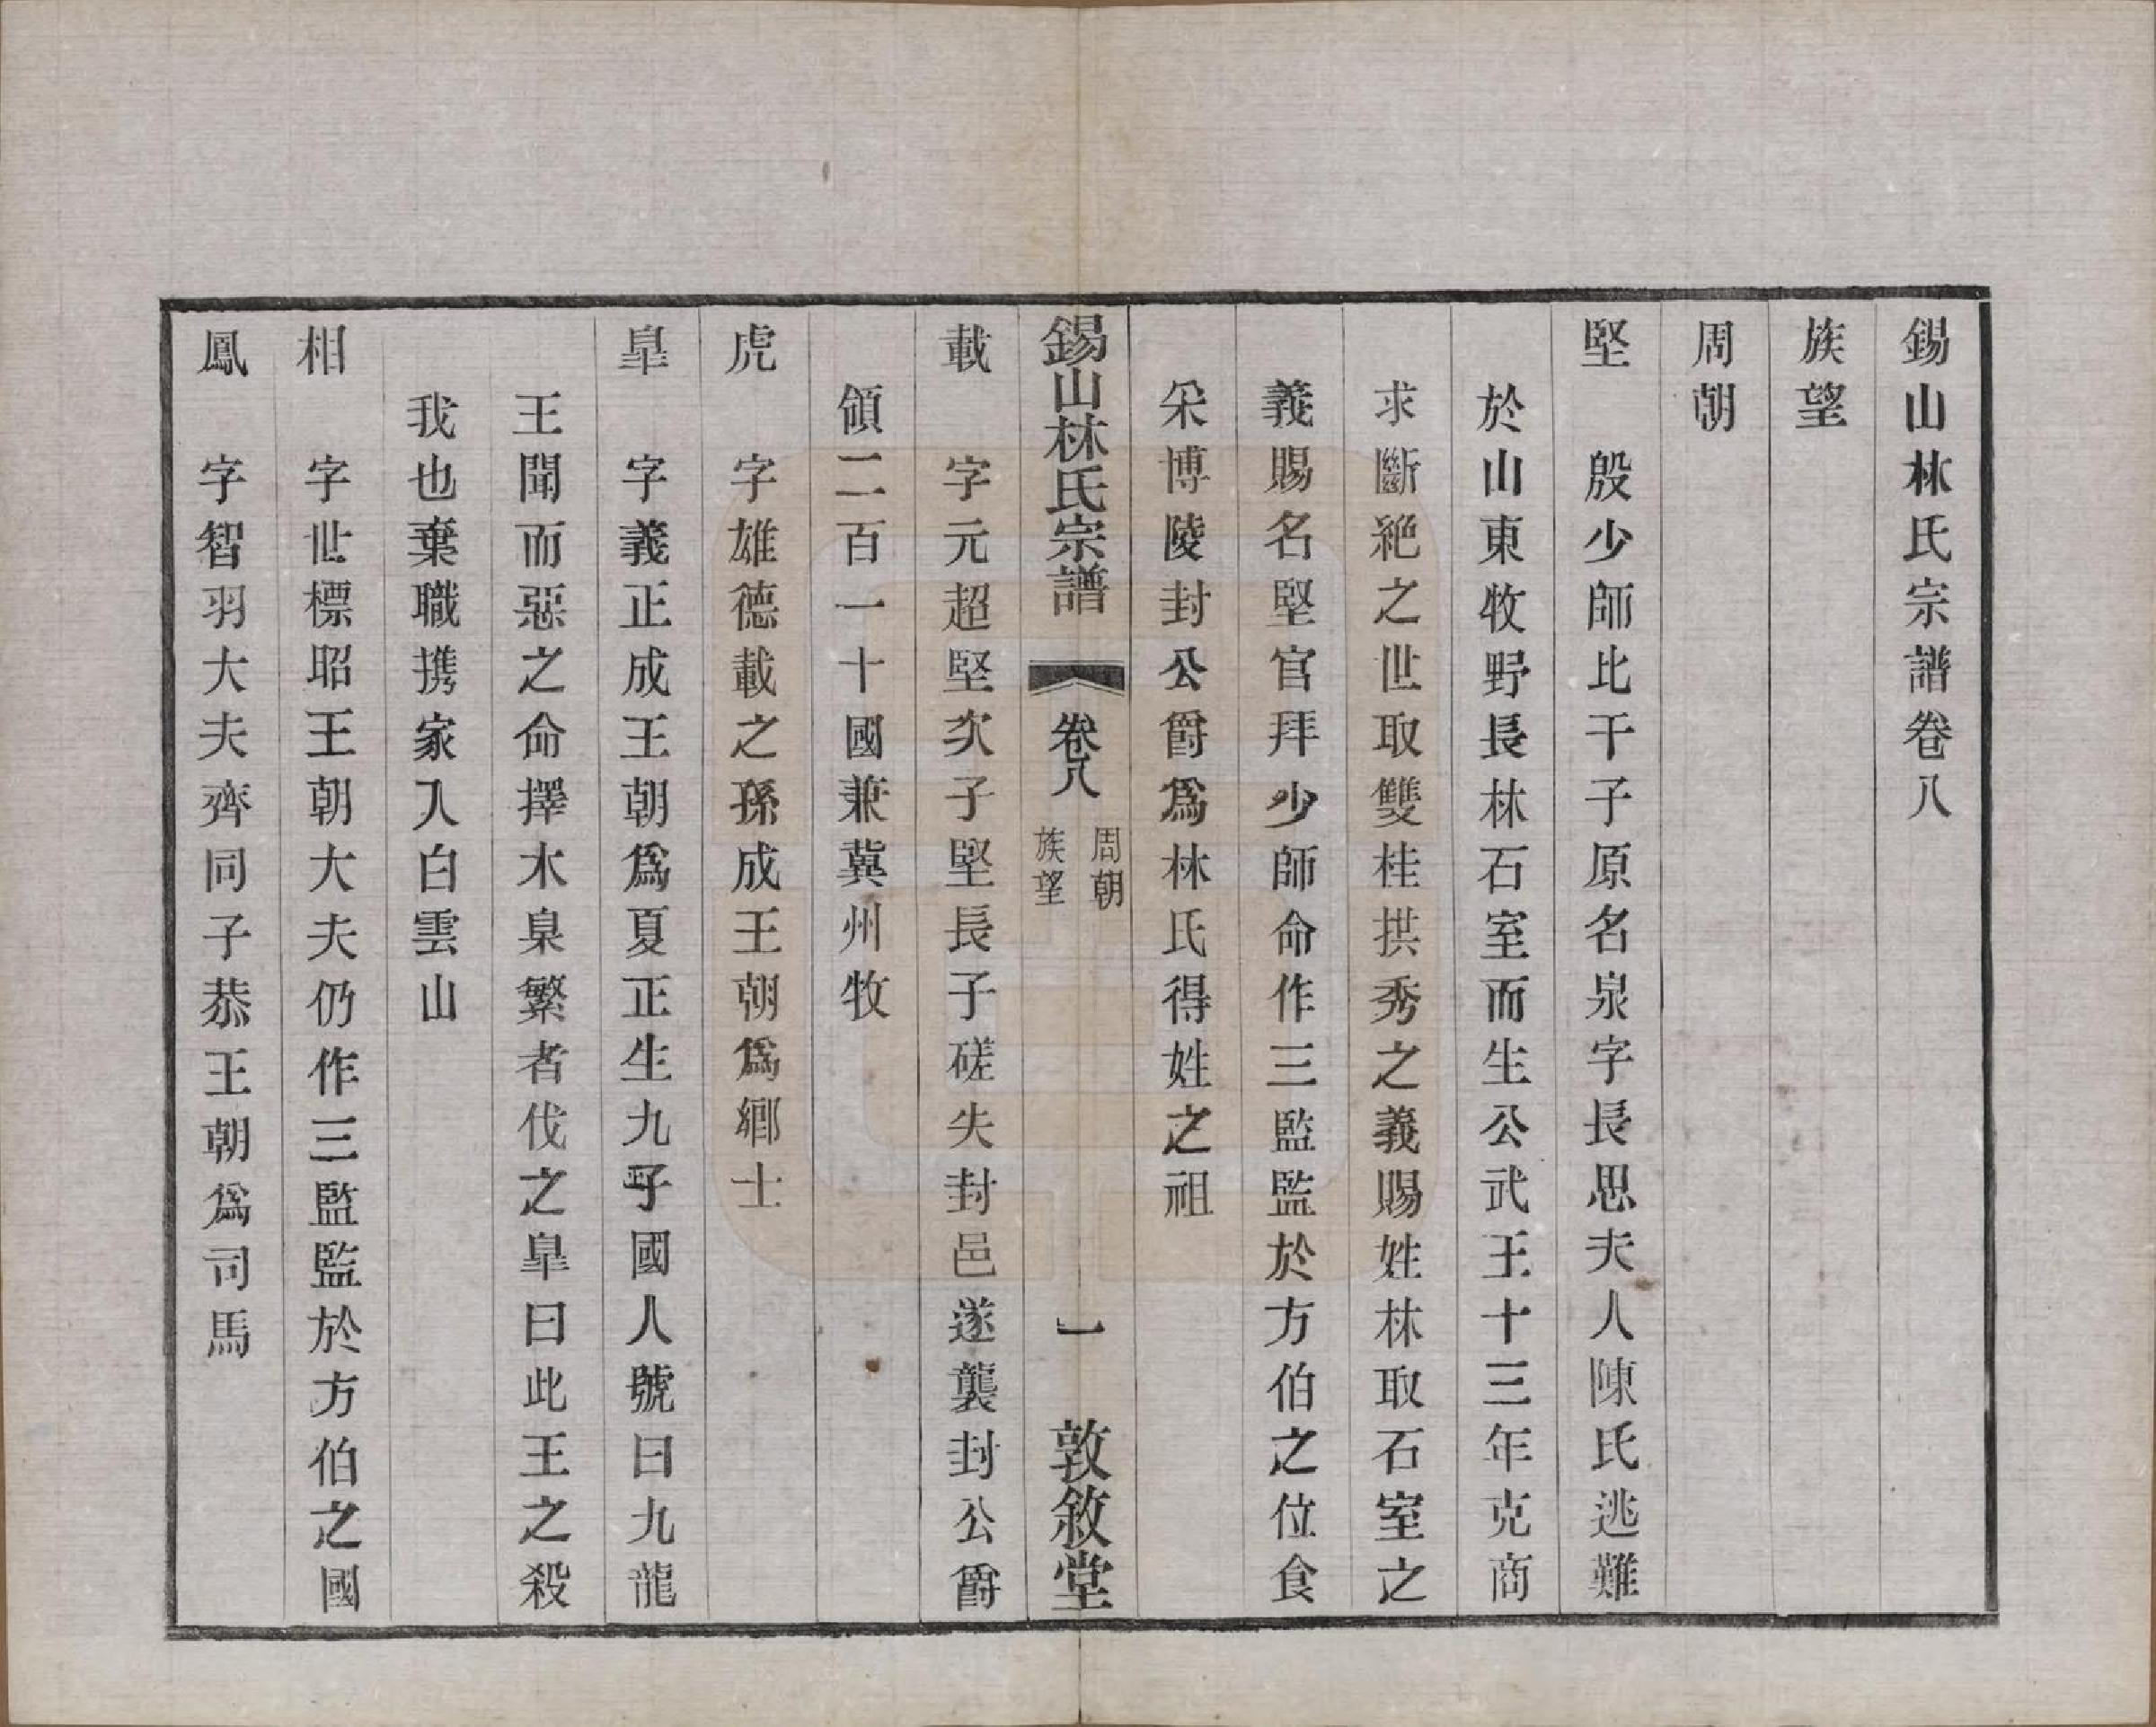 錫山林氏宗譜卷八
族望
周朝
堅　殷少師比干子原名泉字長思夫人陳氏逃難
於山東牧野長林石室而生公武王十三年克商
求斷絕之世取雙桂拱秀之義賜姓林取石室之
義賜名堅官拜少師命作三監監於方伯之位食
采博陵封公爵爲林氏得姓之祖
錫山林氏宗譜　卷八　周朝　族望　一　敦敘堂
載　字元超堅次子堅長子磋失封邑遂襲封公爵
領二百一十國兼冀州牧
虎　字雄德載之孫成王朝爲鄉士
皐　字義正成王朝爲夏正生九子國人號曰九龍
王聞而惡之命擇木臬繁者伐之皐曰此王之殺
我也棄職携家入白雲山
相　字世標昭王朝大夫仍作三監監於方伯之國
鳳　字智羽大夫齊同子恭王朝爲司馬